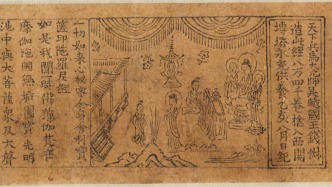 天下兵馬大元帥吳越國王錢俶
造此經八万四千卷捨入西關
塼塔永充供養乙亥八月日紀
一切如来心秘密全身舍利寶
篋印陀羅尼經
如是我聞一時佛薄伽梵在
摩伽陀國無垢園寶光明
池中與大菩薩衆及大聲